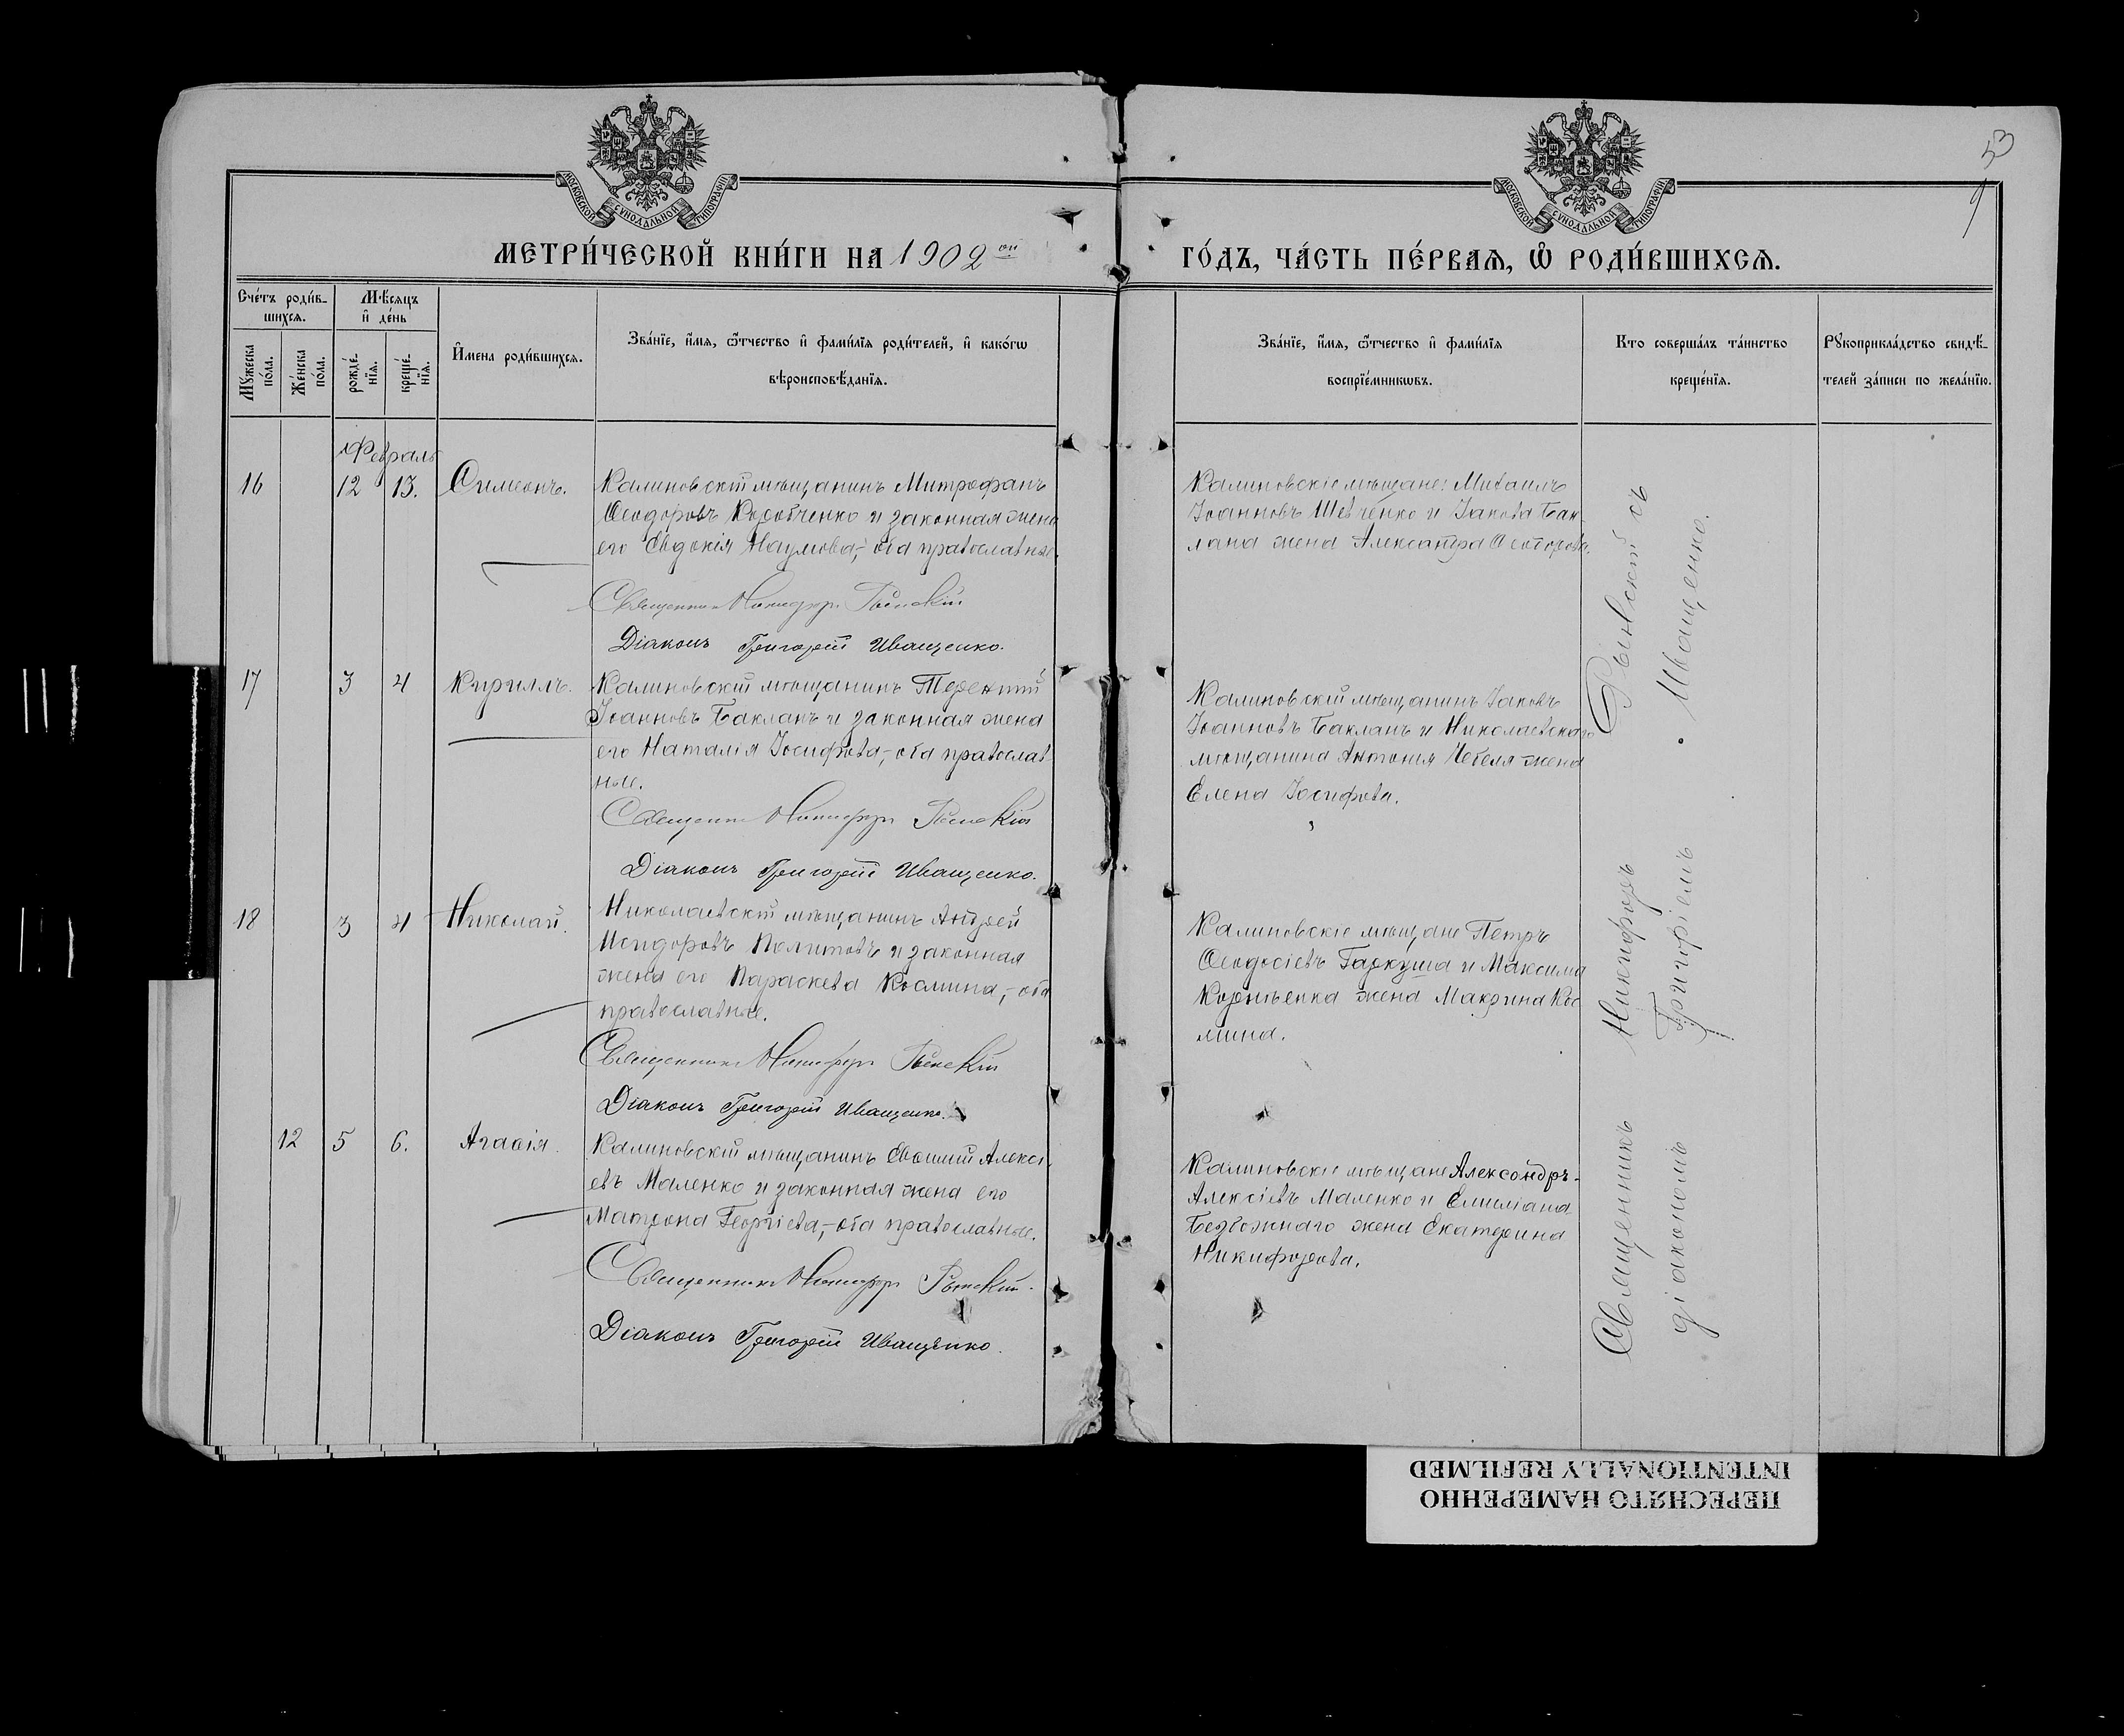 53
МОСКОВСКОЙ СѴНОДАЛЬНОЙ ТИПОГРАФІИ
МОСКОВСКОЙ СѴНОДАЛЬНОЙ ТИПОГРАФІИ
МЕТРИ́ЧЕСКОЙ КНИ́ГИ НА 1902 ой
ГО́ДЪ, ЧА́СТЬ ПЕ́РВАѦ, Ѡ҆ РОДИ́ВШИХСѦ.
Сче́тъ роди́в-
шихсѧ.
Мѣ́сѧцъ
и҆ де́нь
Мꙋ́жеска
по́ла.
Же́нска
по́ла.
рожде́-
нїѧ.
креще́-
нїѧ.
И҆мена роди́вшихсѧ.
Зва́нїе, и҆́мѧ, ѻ҆́тчество и҆ фами́лїѧ роди́телей, и҆ како́гѡ
вѣроисповѣ́данїѧ.
Зва́нїе, и҆́мѧ, ѻ҆́тчество и҆ фами́лїѧ
воспрїе́мникѡвъ.
Кто соверша́лъ та́инство
креще́нїѧ.
Рꙋкоприкла́дство свидѣ́-
телей за́писи по жела́нїю.
Февраль
16 12 13. Симеонъ.
Калиновскій мѣщанинъ Митрофанъ
Ѳеодоровъ Коробченко и законная жена
его Евдокія Наумова,- оба православные.
Священникъ Никифоръ Рыбскій
Діаконъ Григорій Иващенко.
Калиновскіе мѣщане: Михаилъ
Іоанновъ Шевченко и Іакова Бак-
лана жена Александра Ѳеодорова.
17 3 4 Кириллъ.
Калиновскій мѣщанинъ Терентій
Іоанновъ Бакланъ и законная жена
его Наталія Іосифова,- оба православ-
ные.
Священникъ Никифоръ
Діаконъ Григорій Иващенко.
Калиновскій мѣщанинъ Іаковъ
Іоанновъ Бакланъ и Николаевскаго
мѣщанина Антонія жена
Елена Іосифова.
18 3 4 Николай.
Николаевскій мѣщанинъ Андрей
Исидоровъ Политовъ и законная
жена его Параскева Космина,- оба
православные.
Священникъ Никифоръ
Діаконъ Григорій Иващенко.
Калиновскіе мѣщане Петръ
Ѳеодосіевъ Гаркуша и Максима
жена Макрина Кос-
мина.
12 5 6. Агаѳія.
Калиновскій мѣщанинъ Евѳимій Алексі-
евъ Маленко и законная жена его
Матрона Георгіева,- оба православные.
Священникъ Никифоръ
Діаконъ Григорій Иващенко.
Калиновскіе мѣщане Александръ
Алексіевъ Маленко и Емиліана
Безбожнаго жена Екатерина
Никифорова.
Священникъ Никифоръ съ
діакономъ Григоріемъ Иващенко.
ПЕРЕСНЯТО НАМЕРЕННО
INTENTIONALLY REFILMED